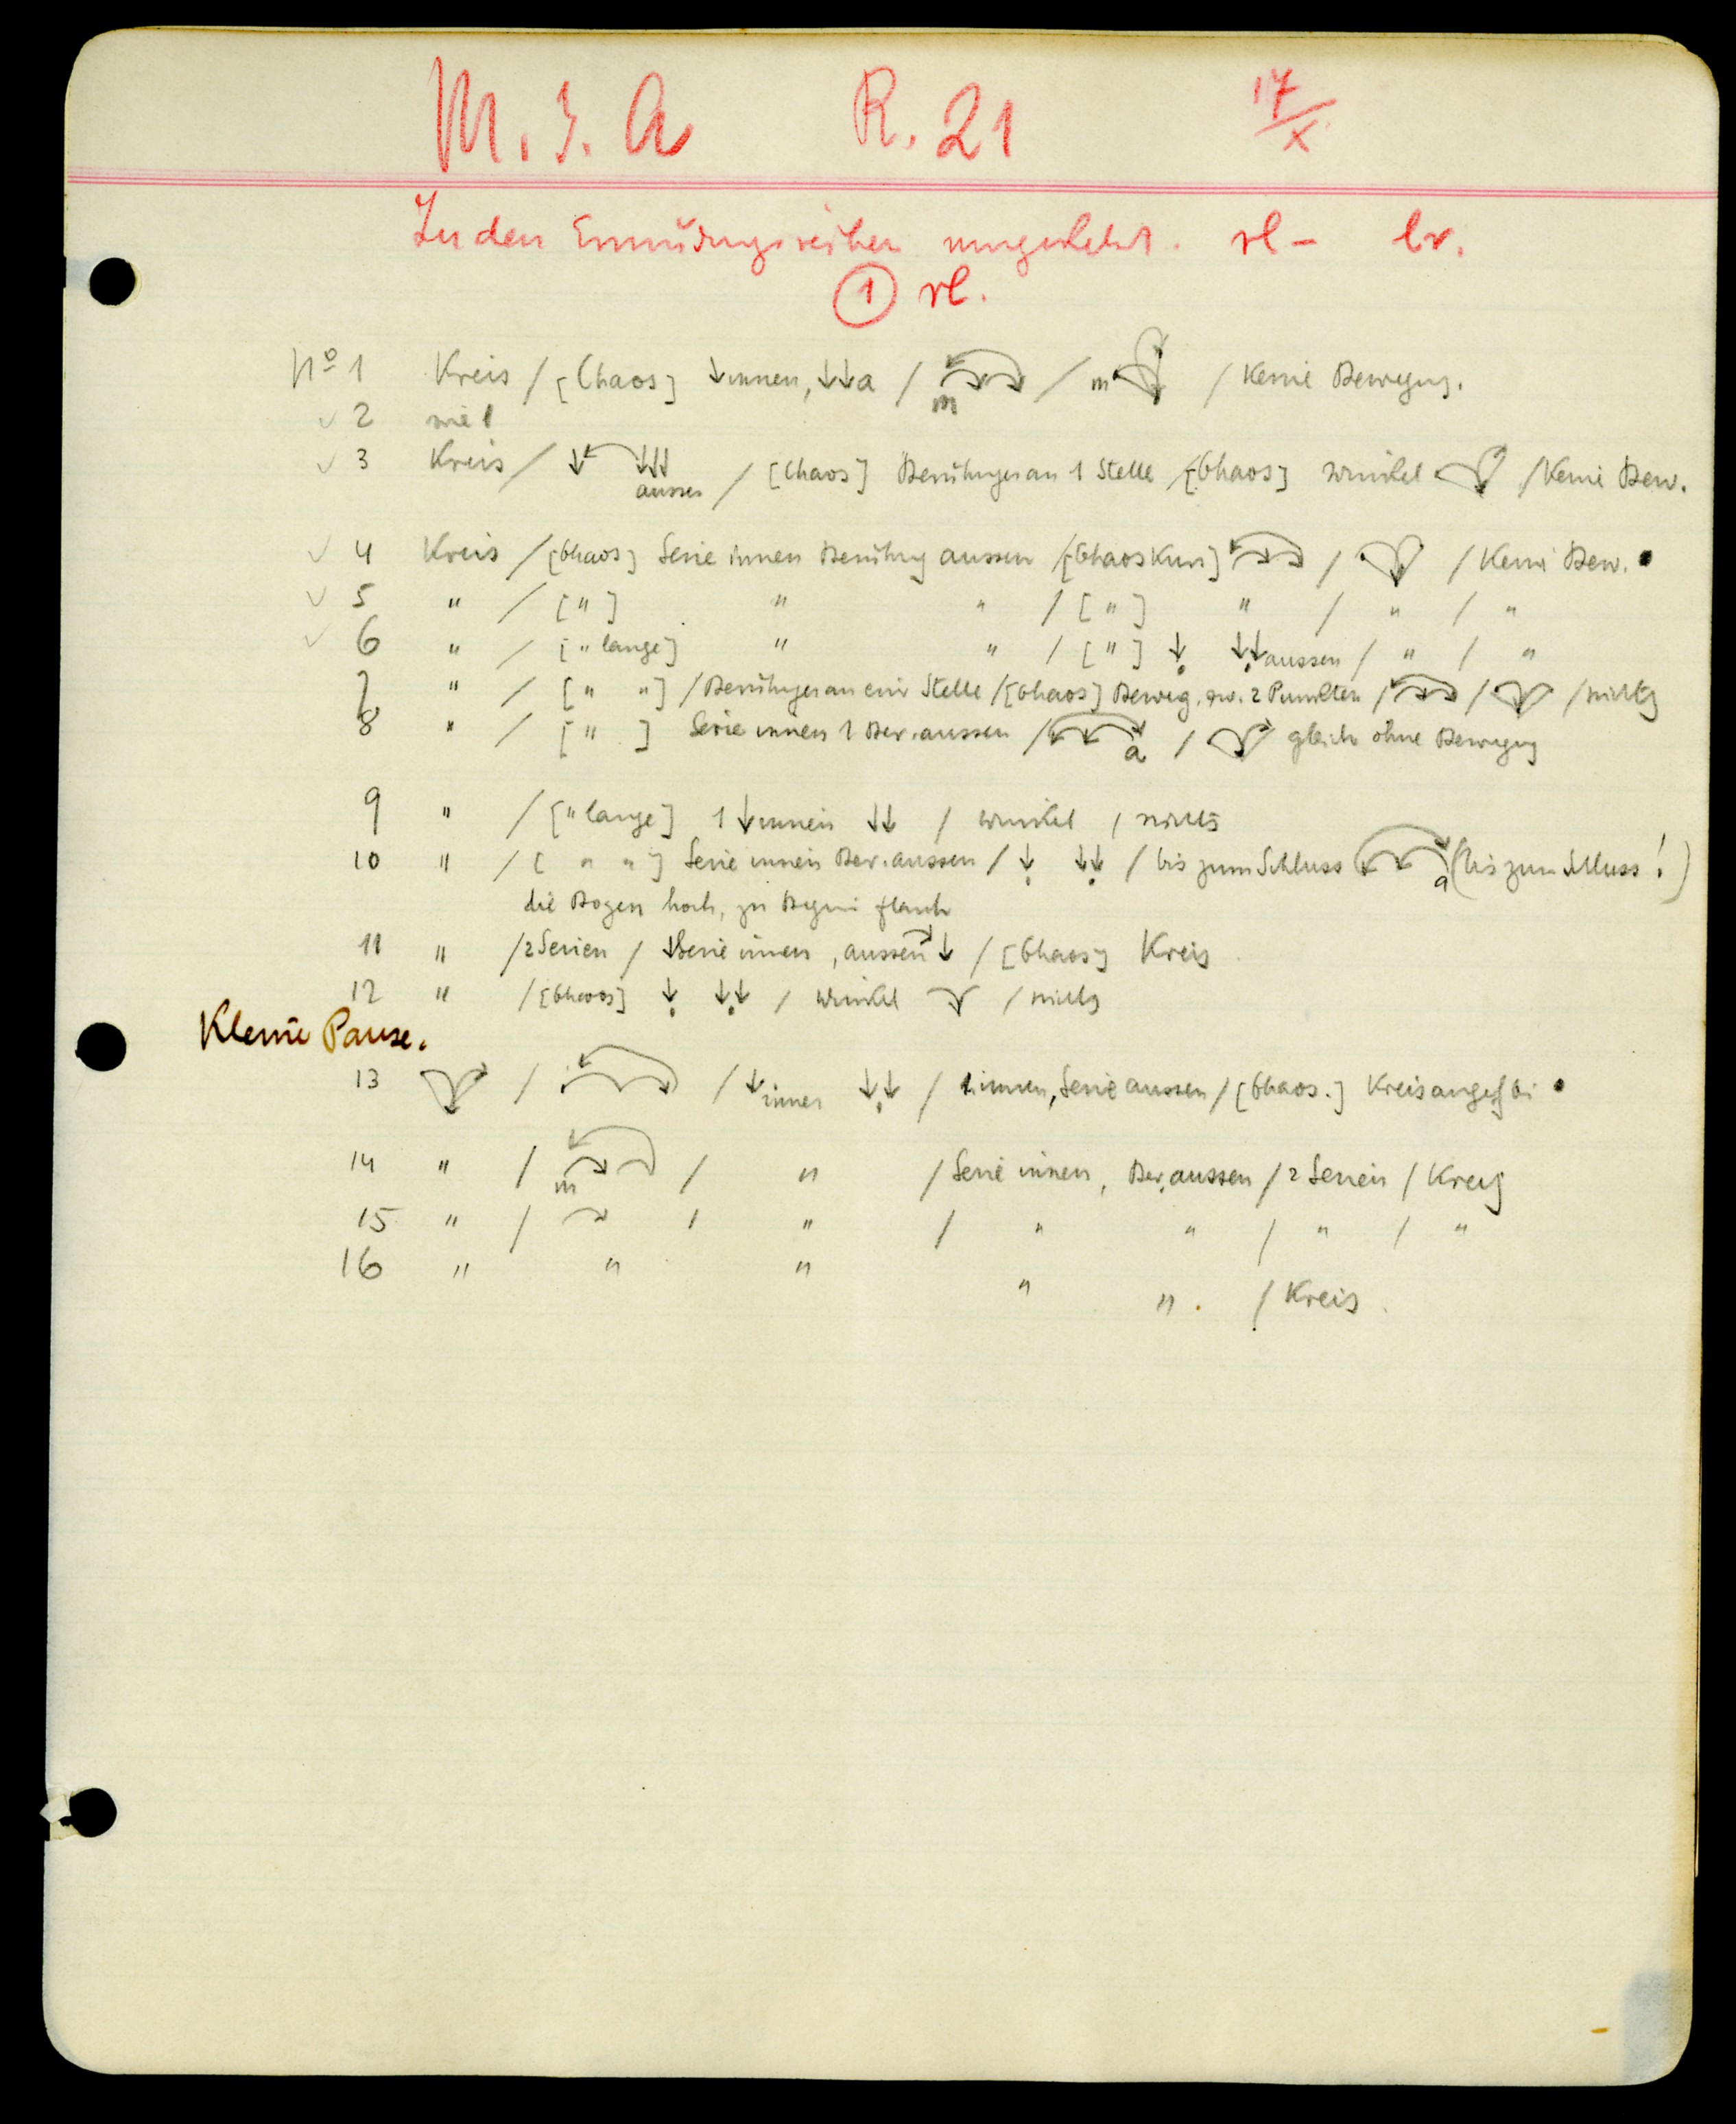 M. J. A R. 21 17/X
In den Ermüdungsreihen umgekehrt. rl – lr.
① rl.
No 1 Kreis / [Chaos] ↓ innen, ↓↓ a / m / m / Keine Bewegung.
✓ 2 wie 1
✓ 3 Kreis / ↓ ↓↓↓ aussen / [Chaos] Berührungen an 1 Stelle / [Chaos] Winkel / Keine Bew.
✓ 4 Kreis / [Chaos] Serie innen Berührung aussen / [Chaos kurz] / / Keine Bew.
✓ 5 " / [ " ] " " / [ " ] " / " / "
✓ 6 " / [ " lange] " " / [ " ] ↓ ↓↓ aussen / " / "
7 " / [ " " ] / Berührungen an einer Stelle / [Chaos] Beweg. zw. 2 Punkten / / / nichts
8 " / [ " ] Serie innen 1 Ber. aussen / a / gleich ohne Bewegung
9 " / [ " lange] 1 ↓ innen ↓↓ / Winkel / nichts
10 " / [ " " ] Serie innen Ber. aussen / ↓ ↓↓ / bis zum Schluss a (bis zum Schluss!)
die Bogen hoch, zu Beginn flach
11 " / 2 Serien / ↓ Serie innen, aussen ↓ / [Chaos] Kreis
12 " / [Chaos] ↓ ↓↓ / Winkel / nichts
Kleine Pause.
13 / / ↓ innen ↓↓ / 1 innen, Serie aussen / [Chaos.] Kreis
14 " / m / " / Serie innen, Ber. aussen / 2 Serien / Kreis
15 " / / " / " " / " / "
16 " " " " " . / Kreis